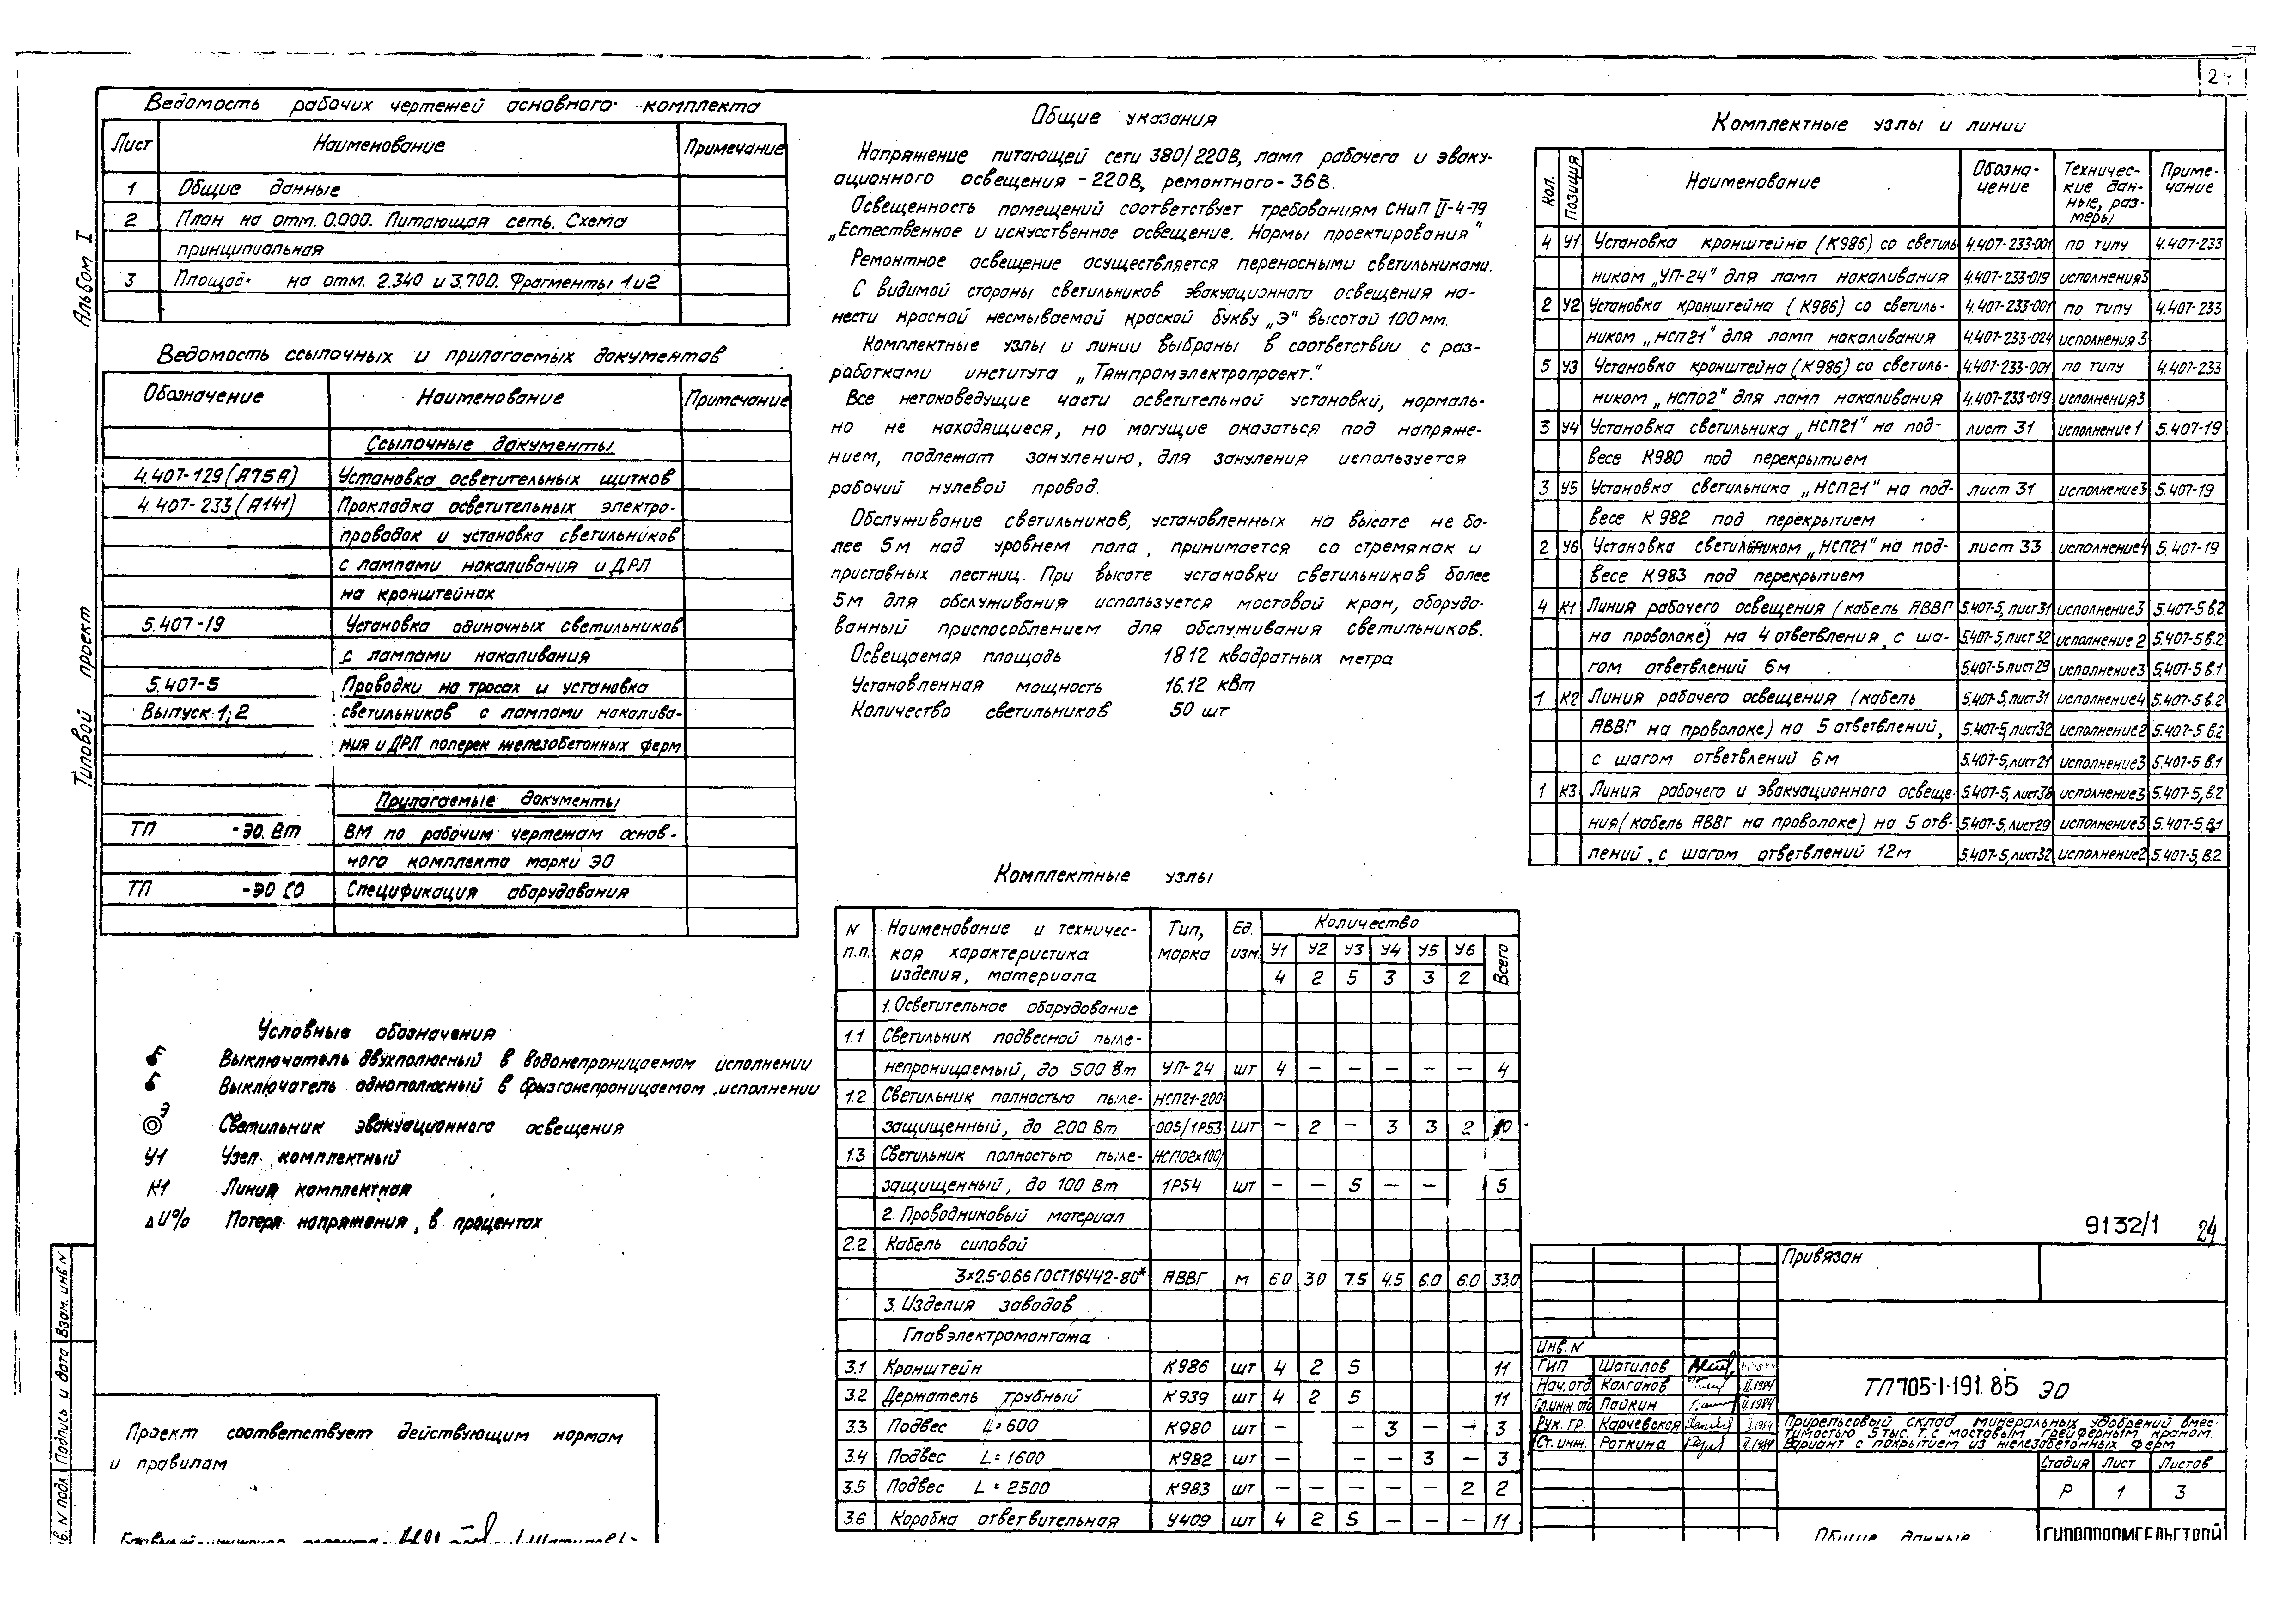 Ведомость рабочих чертежей основного комплекта
Лист Наименование Примечание
1 Общие данные
2 План на отм. 0.000. Питающая сеть. Схема
принципиальная
3 Площад. на отм. 2.340 и 3.700. Фрагменты 1 и 2
Ведомость ссылочных и прилагаемых документов
Обозначение Наименование Примечание
Ссылочные документы
4.407-129 (А75А) Установка осветительных щитков
4.407-233 (А141) Прокладка осветительных электро-
проводок и установка светильников
с лампами накаливания и ДРЛ
на кронштейнах
5.407-19 Установка одиночных светильников
с лампами накаливания
5.407-5 Проводки на тросах и установка
Выпуск 1; 2 светильников с лампами накалива-
ния и ДРЛ поперек железобетонных ферм
Прилагаемые документы
ТП -ЭО.Вт ВМ по рабочим чертежам основ-
ного комплекта марки ЭО
ТП -ЭО СО Спецификация оборудования
Условные обозначения
Выключатель двухполюсный в водонепроницаемом исполнении
Выключатель однополюсный в брызгонепроницаемом исполнении
Э Светильник эвакуационного освещения
У1 Узел комплектный
К1 Линия комплектная
ΔU% Потеря напряжения, в процентах
Проект соответствует действующим нормам
и правилам
Альбом I
Типовой проект
Взам. инв N
Подпись и дата
в. N подл.
Общие указания
Напряжение питающей сети 380/220В, ламп рабочего и эваку-
ационного освещения - 220В, ремонтного - 36В.
Освещенность помещений соответствует требованиям СНиП II-4-79
„Естественное и искусственное освещение. Нормы проектирования"
Ремонтное освещение осуществляется переносными светильниками.
С видимой стороны светильников эвакуационного освещения на-
нести красной несмываемой краской букву „Э" высотой 100мм.
Комплектные узлы и линии выбраны в соответствии с раз-
работками института „Тяжпромэлектропроект."
Все нетоковедущие части осветительной установки, нормаль-
но не находящиеся, но могущие оказаться под напряже-
нием, подлежат занулению, для зануления используется
рабочий нулевой провод.
Обслуживание светильников, установленных на высоте не бо-
лее 5м над уровнем пола, принимается со стремянок и
приставных лестниц. При высоте установки светильников более
5м для обслуживания используется мостовой кран, оборудо-
ванный приспособлением для обслуживания светильников.
Освещаемая площадь 1812 квадратных метра
Установленная мощность 16.12 кВт
Количество светильников 50 шт
Комплектные узлы
N п.п. Наименование и техничес- кая характеристика изделия, материала Тип, марка Ед. изм. Количество
У1 У2 У3 У4 У5 У6 Всего
4 2 5 3 3 2
1. Осветительное оборудование
1.1 Светильник подвесной пыле-
непроницаемый, до 500 Вт УП-24 шт 4 — — — — — 4
1.2 Светильник полностью пыле- НСП21-200-
защищенный, до 200 Вт -005/1Р53 шт — 2 — 3 3 2 10
1.3 Светильник полностью пыле- НСП02х100/
защищенный, до 100 Вт 1Р54 шт — — 5 — — 5
2. Проводниковый материал
2.2 Кабель силовой
3×2.5-0.66 ГОСТ16442-80* АВВГ м 6.0 3.0 7.5 4.5 6.0 6.0 33.0
3. Изделия заводов
Главэлектромонтажа
3.1 Кронштейн К986 шт 4 2 5 11
3.2 Держатель трубный К939 шт 4 2 5 11
3.3 Подвес L=600 К980 шт — — 3 — — 3
3.4 Подвес L=1600 К982 шт — — — 3 — 3
3.5 Подвес L=2500 К983 шт — — — — — 2 2
3.6 Коробка ответвительная У409 шт 4 2 5 — — — 11
Комплектные узлы и линии
Кол. Позиция Наименование Обозна- чение Техничес- кие дан- ные, раз- меры Приме- чание
4 У1 Установка кронштейна (К986) со светиль 4.407-233-001 по типу 4.407-233
ником „УП-24" для ламп накаливания 4.407-233-019 исполнения3
2 У2 Установка кронштейна (К986) со светиль- 4.407-233-001 по типу 4.407-233
ником „НСП21" для ламп накаливания 4.407-233-024 исполнения 3
5 У3 Установка кронштейна (К986) со светиль- 4.407-233-001 по типу 4.407-233
ником „НСП02" для ламп накаливания 4.407-233-019 исполнения3
3 У4 Установка светильника „НСП21" на под- лист 31 исполнение 1 5.407-19
весе К980 под перекрытием
3 У5 Установка светильника „НСП21" на под- лист 31 исполнение3 5.407-19
весе К982 под перекрытием
2 У6 Установка светильником „НСП21" на под- лист 33 исполнение4 5.407-19
весе К983 под перекрытием
4 К1 Линия рабочего освещения (кабель АВВГ 5.407-5, лист31 исполнение3 5.407-5 в.2
на проволоке) на 4 ответвления, с ша- 5.407-5, лист 32 исполнение 2 5.407-5 в.2
гом ответвлений 6м 5.407-5 лист29 исполнение3 5.407-5 в.1
1 К2 Линия рабочего освещения (кабель 5.407-5, лист31 исполнение4 5.407-5 в.2
АВВГ на проволоке) на 5 ответвлений, 5.407-5, лист32 исполнение2 5.407-5 в.2
с шагом ответвлений 6м 5.407-5, лист21 исполнение3 5.407-5 в.1
1 К3 Линия рабочего и эвакуационного освеще- 5.407-5, лист38 исполнение3 5.407-5, в.2
ния (кабель АВВГ на проволоке) на 5 отв- 5.407-5, лист29 исполнение3 5.407-5, в.1
лений, с шагом ответвлений 12м 5.407-5, лист32 исполнение2 5.407-5, в.2
9132/1 24
Привязан
Инв. N
ГИП Шатилов
Нач. отд. Калганов II.1984
Гл.инж. отд Пайкин II.1984
Рук. гр. Карчевская
Ст. инж. Роткина II.1984
ТП 705-1-191.85 ЭО
Прирельсовый склад минеральных удобрений вмес-
тимостью 5 тыс. т. с мостовым грейферным краном.
Вариант с покрытием из железобетонных ферм
Стадия Лист Листов
Р 1 3
Общие данные
ГИПРОПРОМСЕЛЬСТРОЙ